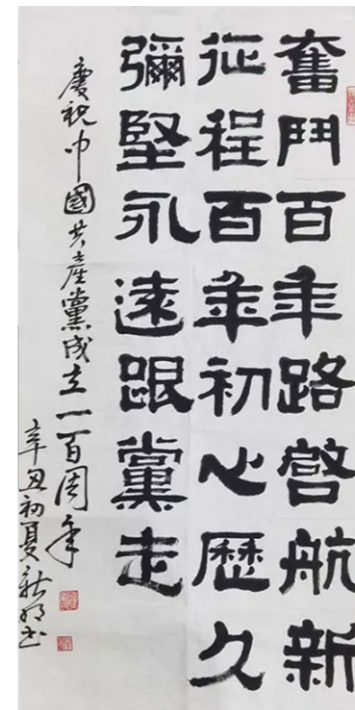 奮鬥百年路啓航新
征程百年初心歷久
彌堅永遠跟黨走
慶祝中國共產黨成立一百周年
辛丑初夏